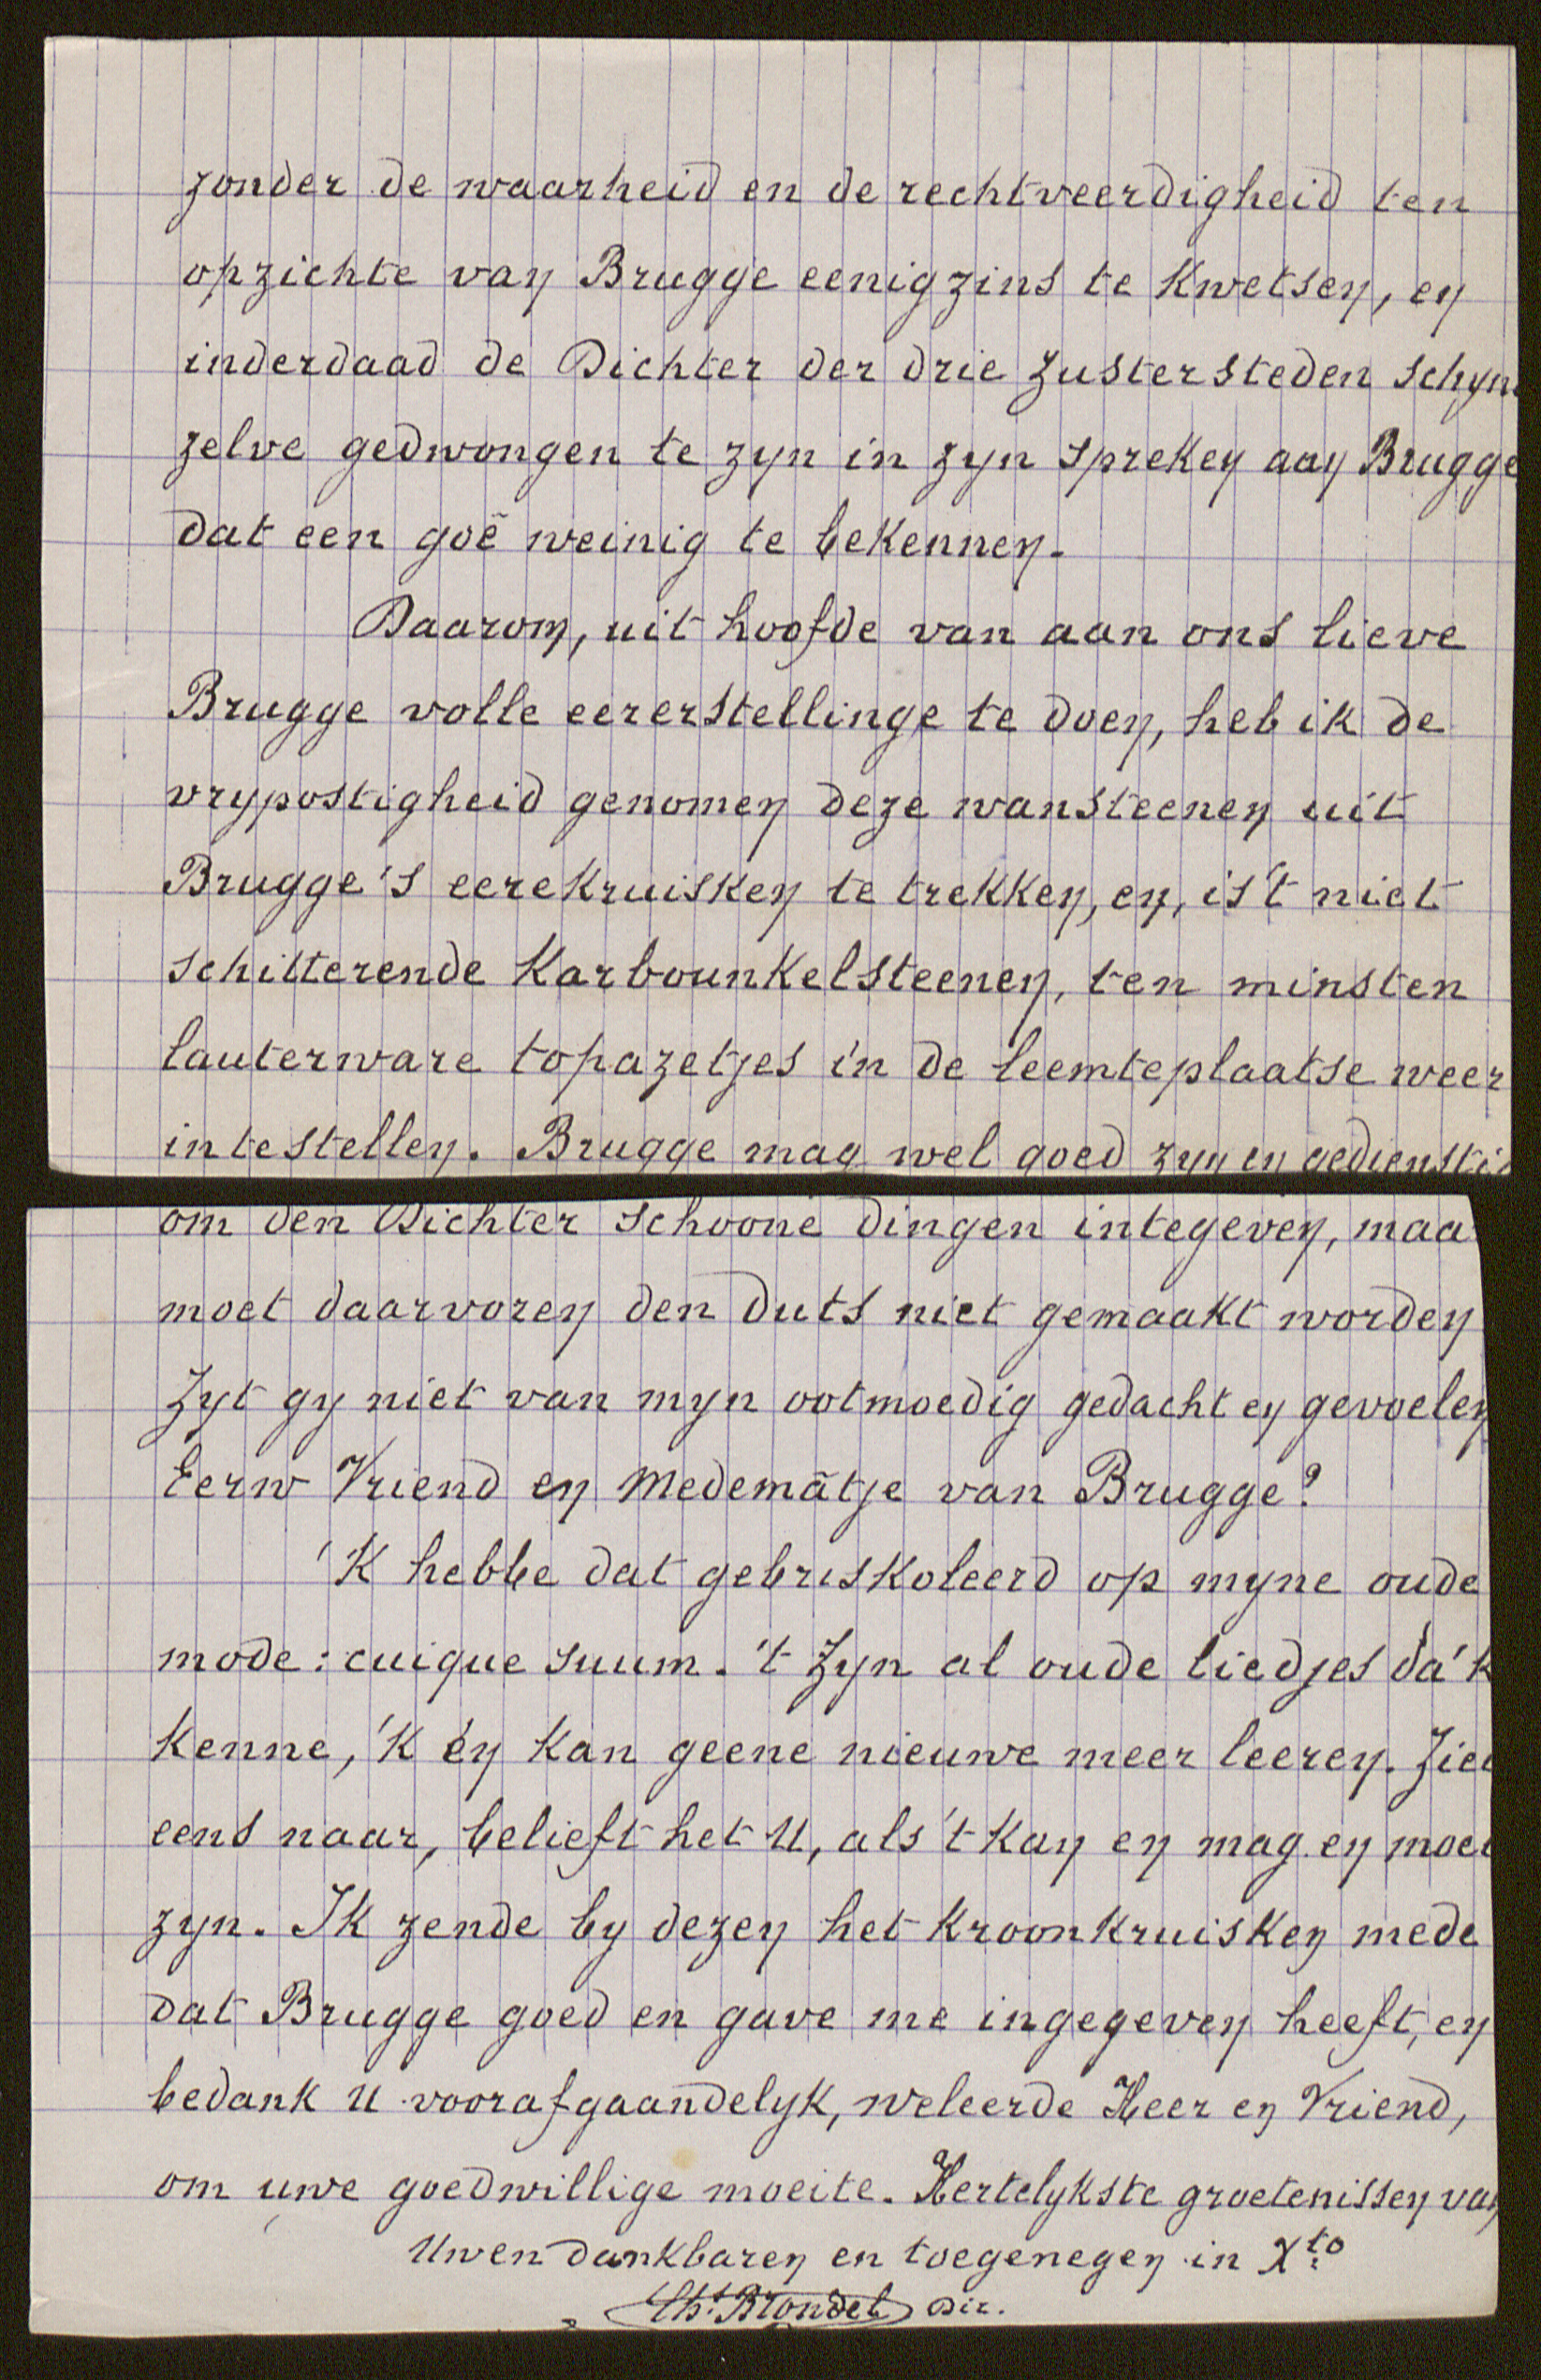 zonder de waarheid en de rechtveerdigheid ten
opzichte van Brugge eenigzins te kwetsen, en
inderdaad de Dichter der drie zustersteden schyn
zelve gedwongen te zyn in zyn spreken aan Brugge
dat een goê weinig te bekennen.
Daarom, uit hoofde van aan ons lieve
Brugge volle eererstellinge te doen, heb ik de
vrypostigheid genomen deze wansteenen uit
Brugge's eerekruisken te trekken, en, is 't niet
schitterende karbounkelsteenen, ten minsten
lauterware topazetjes in de leemteplaatse weer
intestellen. Brugge mag wel goed zyn en gedienstig
om den Dichter schoone dingen integeven, maa
moet daarvoren den duts niet gemaakt worden
Zyt gy niet van myn ootmoedig gedacht en gevoelen
Eerw Vriend en Medemâtje van Brugge?
'K hebbe dat gebriskoleerd op myne oude
mode: cuique suum. 't Zyn al oude liedjes da'k
kenne, 'k en kan geene nieuwe meer leeren. Ziet
eens naar, belieft het U, als 't kan en mag en moet
zyn. Ik zende by dezen het kroonkruisken mede
dat Brugge goed en gave me ingegeven heeft, en
bedank U voorafgaandelyk, weleerde Heer en Vriend,
om uwe goedwillige moeite. Hertelykste groetenissen van
Uwen dankbaren en toegenegen in Xto
Ch. Brondel Dir.